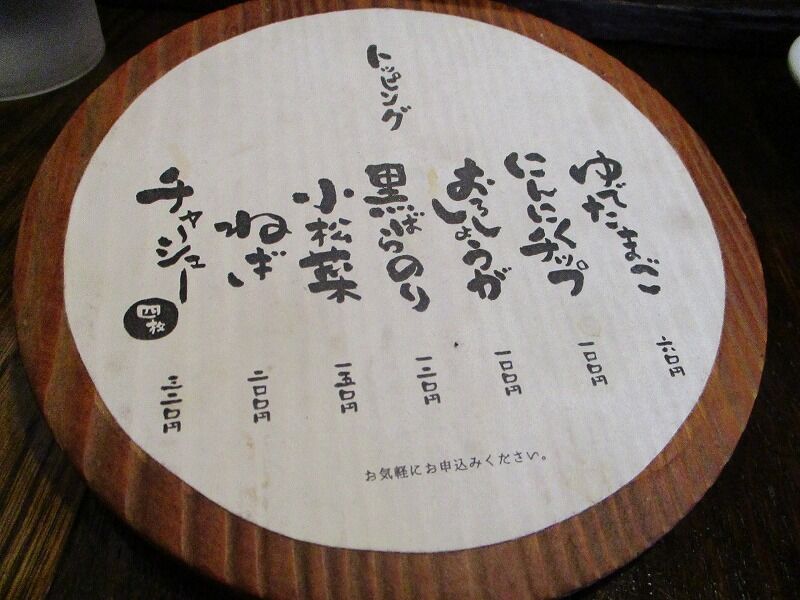 トッピング
ゆでたまご 六〇円
にんにくチップ 一〇〇円
おろししょうが 一〇〇円
黒ばらのり 一二〇円
小松菜 一五〇円
ねぎ 二〇〇円
チャーシュー 四枚 三二〇円
お気軽にお申込みください。